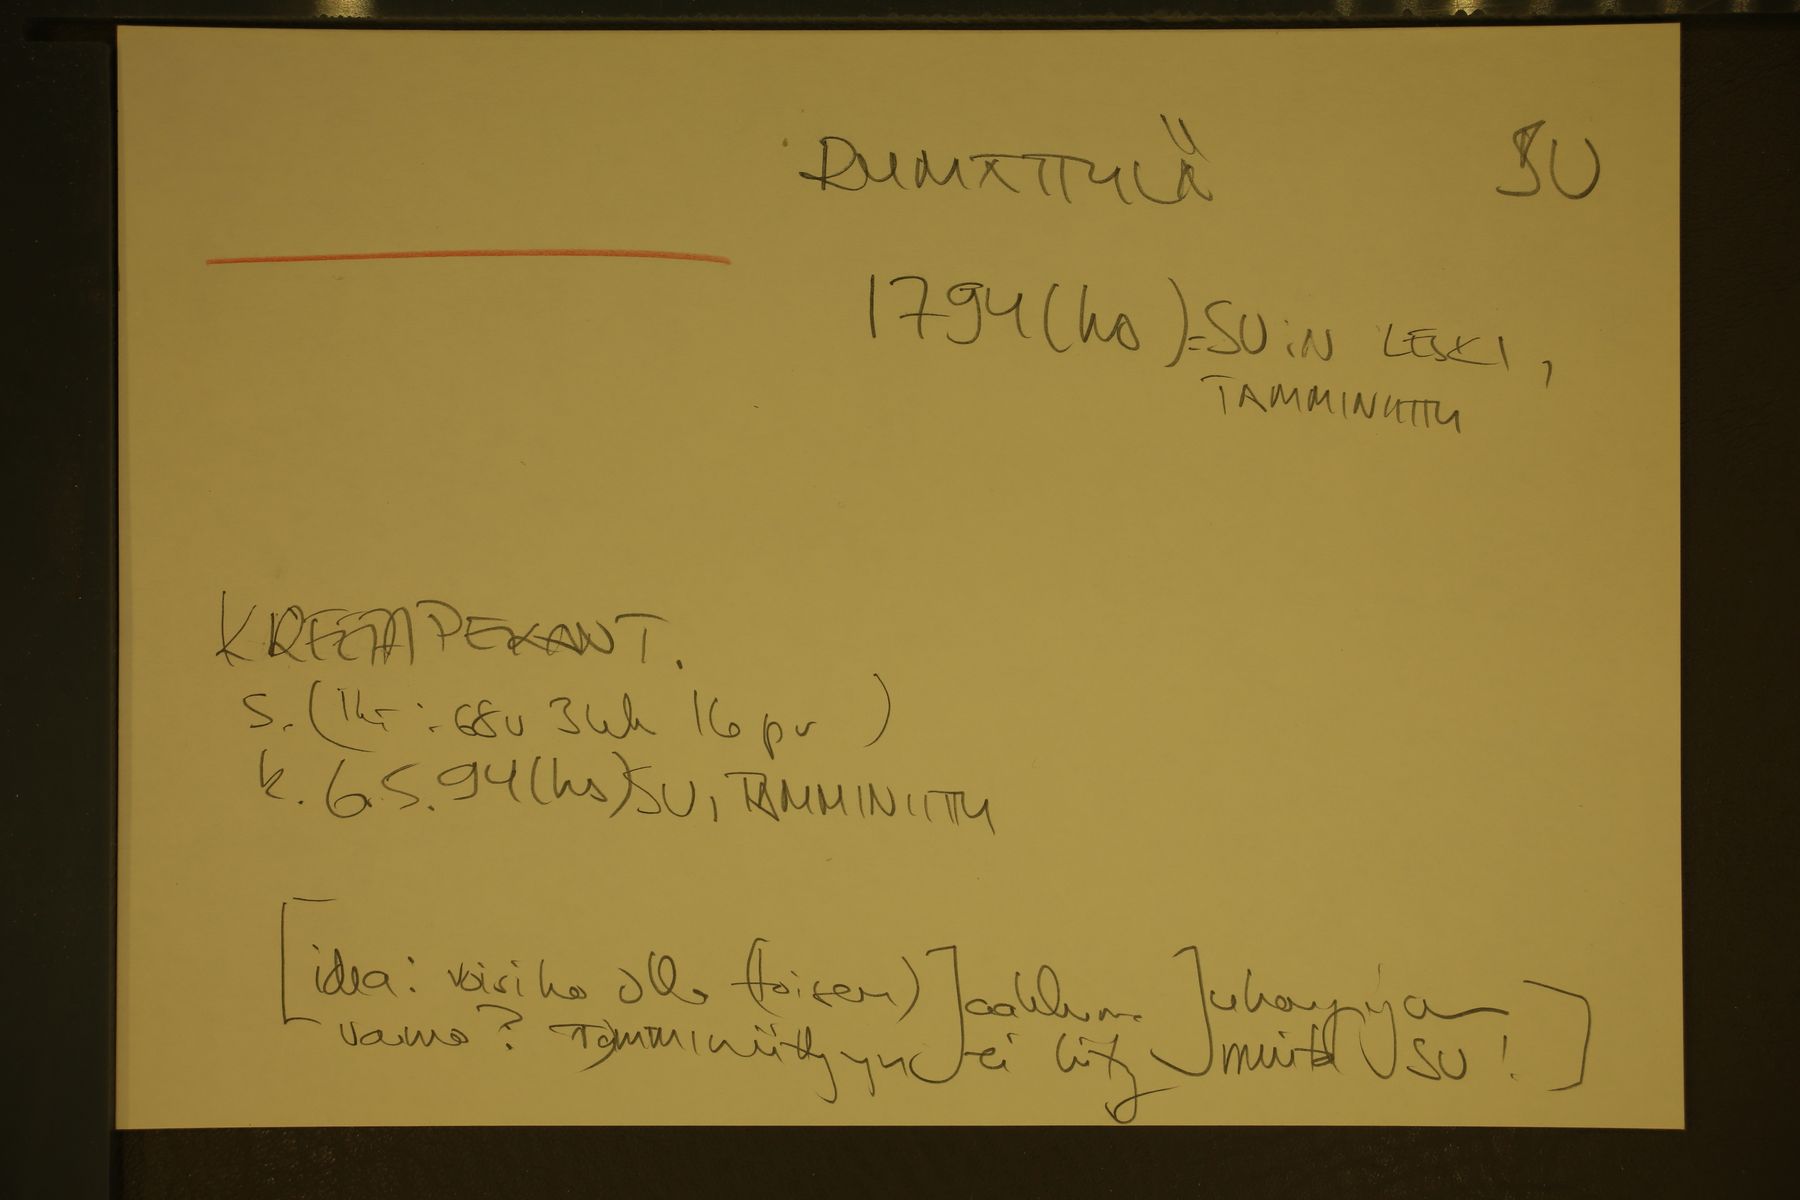 RYMÄTTYLÄ SU
1794 (hs) = SU:IN LESKI,
TAMMINIITTY
KREETA PEKANT.
s. (ikä: 68v 3kk 16 pv )
k. 6.5.94 (hs) SU, TAMMINIITTY
[idea: voisiko olla (toisen) Jaakko Juhanpojan
vaimo? TAMMINiittyyn ei liity muita SU!]